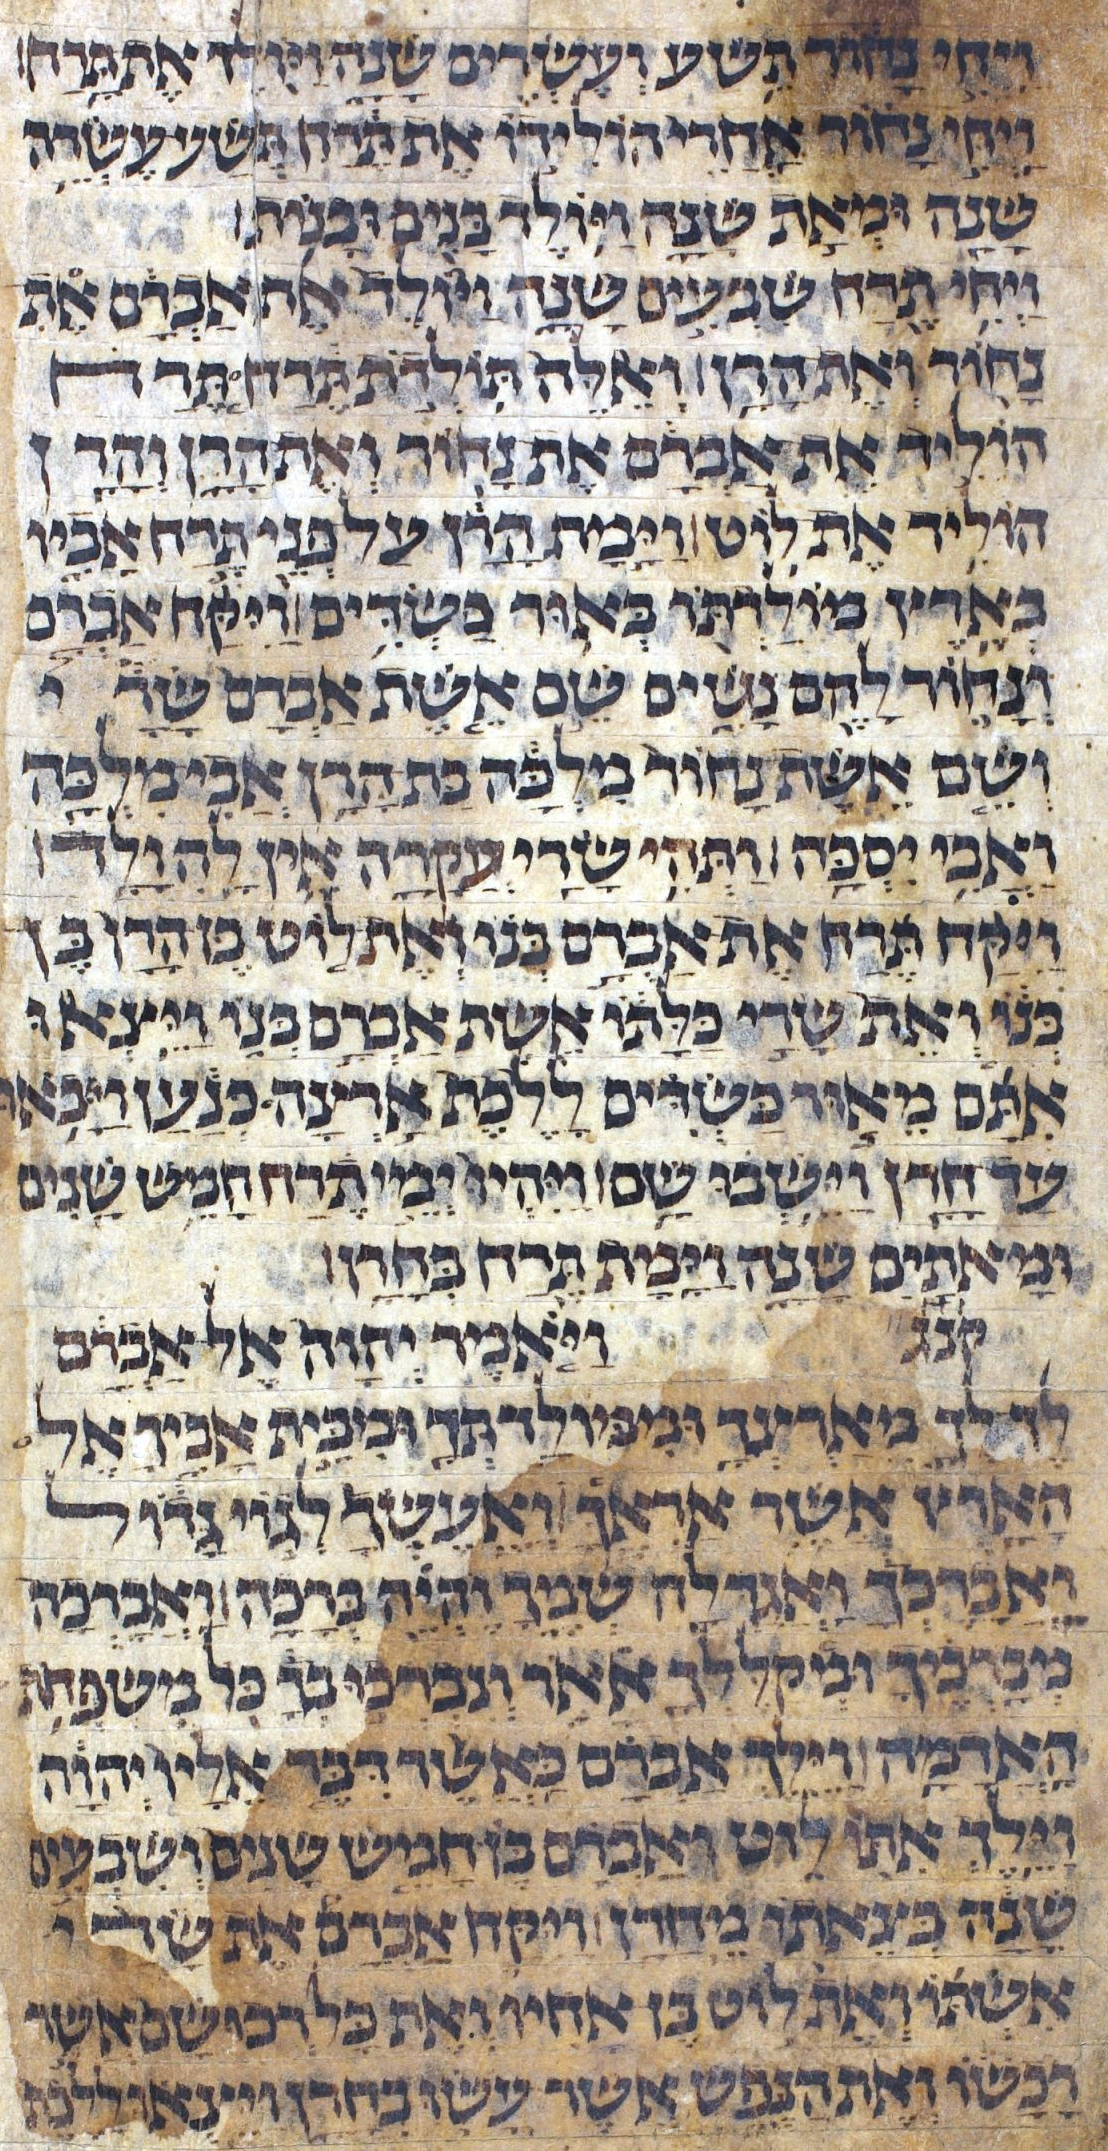 ויחי נחור תשע ועשרים שנה ויולד את תרח
ויחי נחור אחרי הולידו את תרח תשע עשרה
שנה ומאת שנה ויולד בנים ובנות
ויחי תרח שבעים שנה ויולד את אברם את
נחור ואת הרן ואלה תולדת תרח תרח
הוליד את אברם את נחור ואת הרן והרן
הוליד את לוט וימת הרן על פני תרח אביו
בארץ מולדתו באור כשדים ויקח אברם
ונחור להם נשים שם אשת אברם שרי
ושם אשת נחור מלכה בת הרן אבי מלכה
ואבי יסכה ותהי שרי עקרה אין לה ולד
ויקח תרח את אברם בנו ואת לוט בן הרן בן
בנו ואת שרי כלתו אשת אברם בנו ויצאו
אתם מאור כשדים ללכת ארצה כנען ויבאו
עד חרן וישבו שם ויהיו ימי תרח חמש שנים
ומאתים שנה וימת תרח בחרן
קנג ויאמר יהוה אל אברם
לך לך מארצך וממולדתך ומבית אביך אל
הארץ אשר אראך ואעשך לגוי גדול
ואברכך ואגדלה שמך והיה ברכה ואברכה
מברכיך ומקללך אאר ונברכו בך כל משפחת
האדמה וילך אברם כאשר דבר אליו יהוה
וילך אתו לוט ואברם בן חמש שנים ושבעים
שנה בצאתו מחרן ויקח אברם את שרי
אשתו ואת לוט בן אחיו ואת כל רכושם אשר
רכשו ואת הנפש אשר עשו בחרן ויצאו ללכת